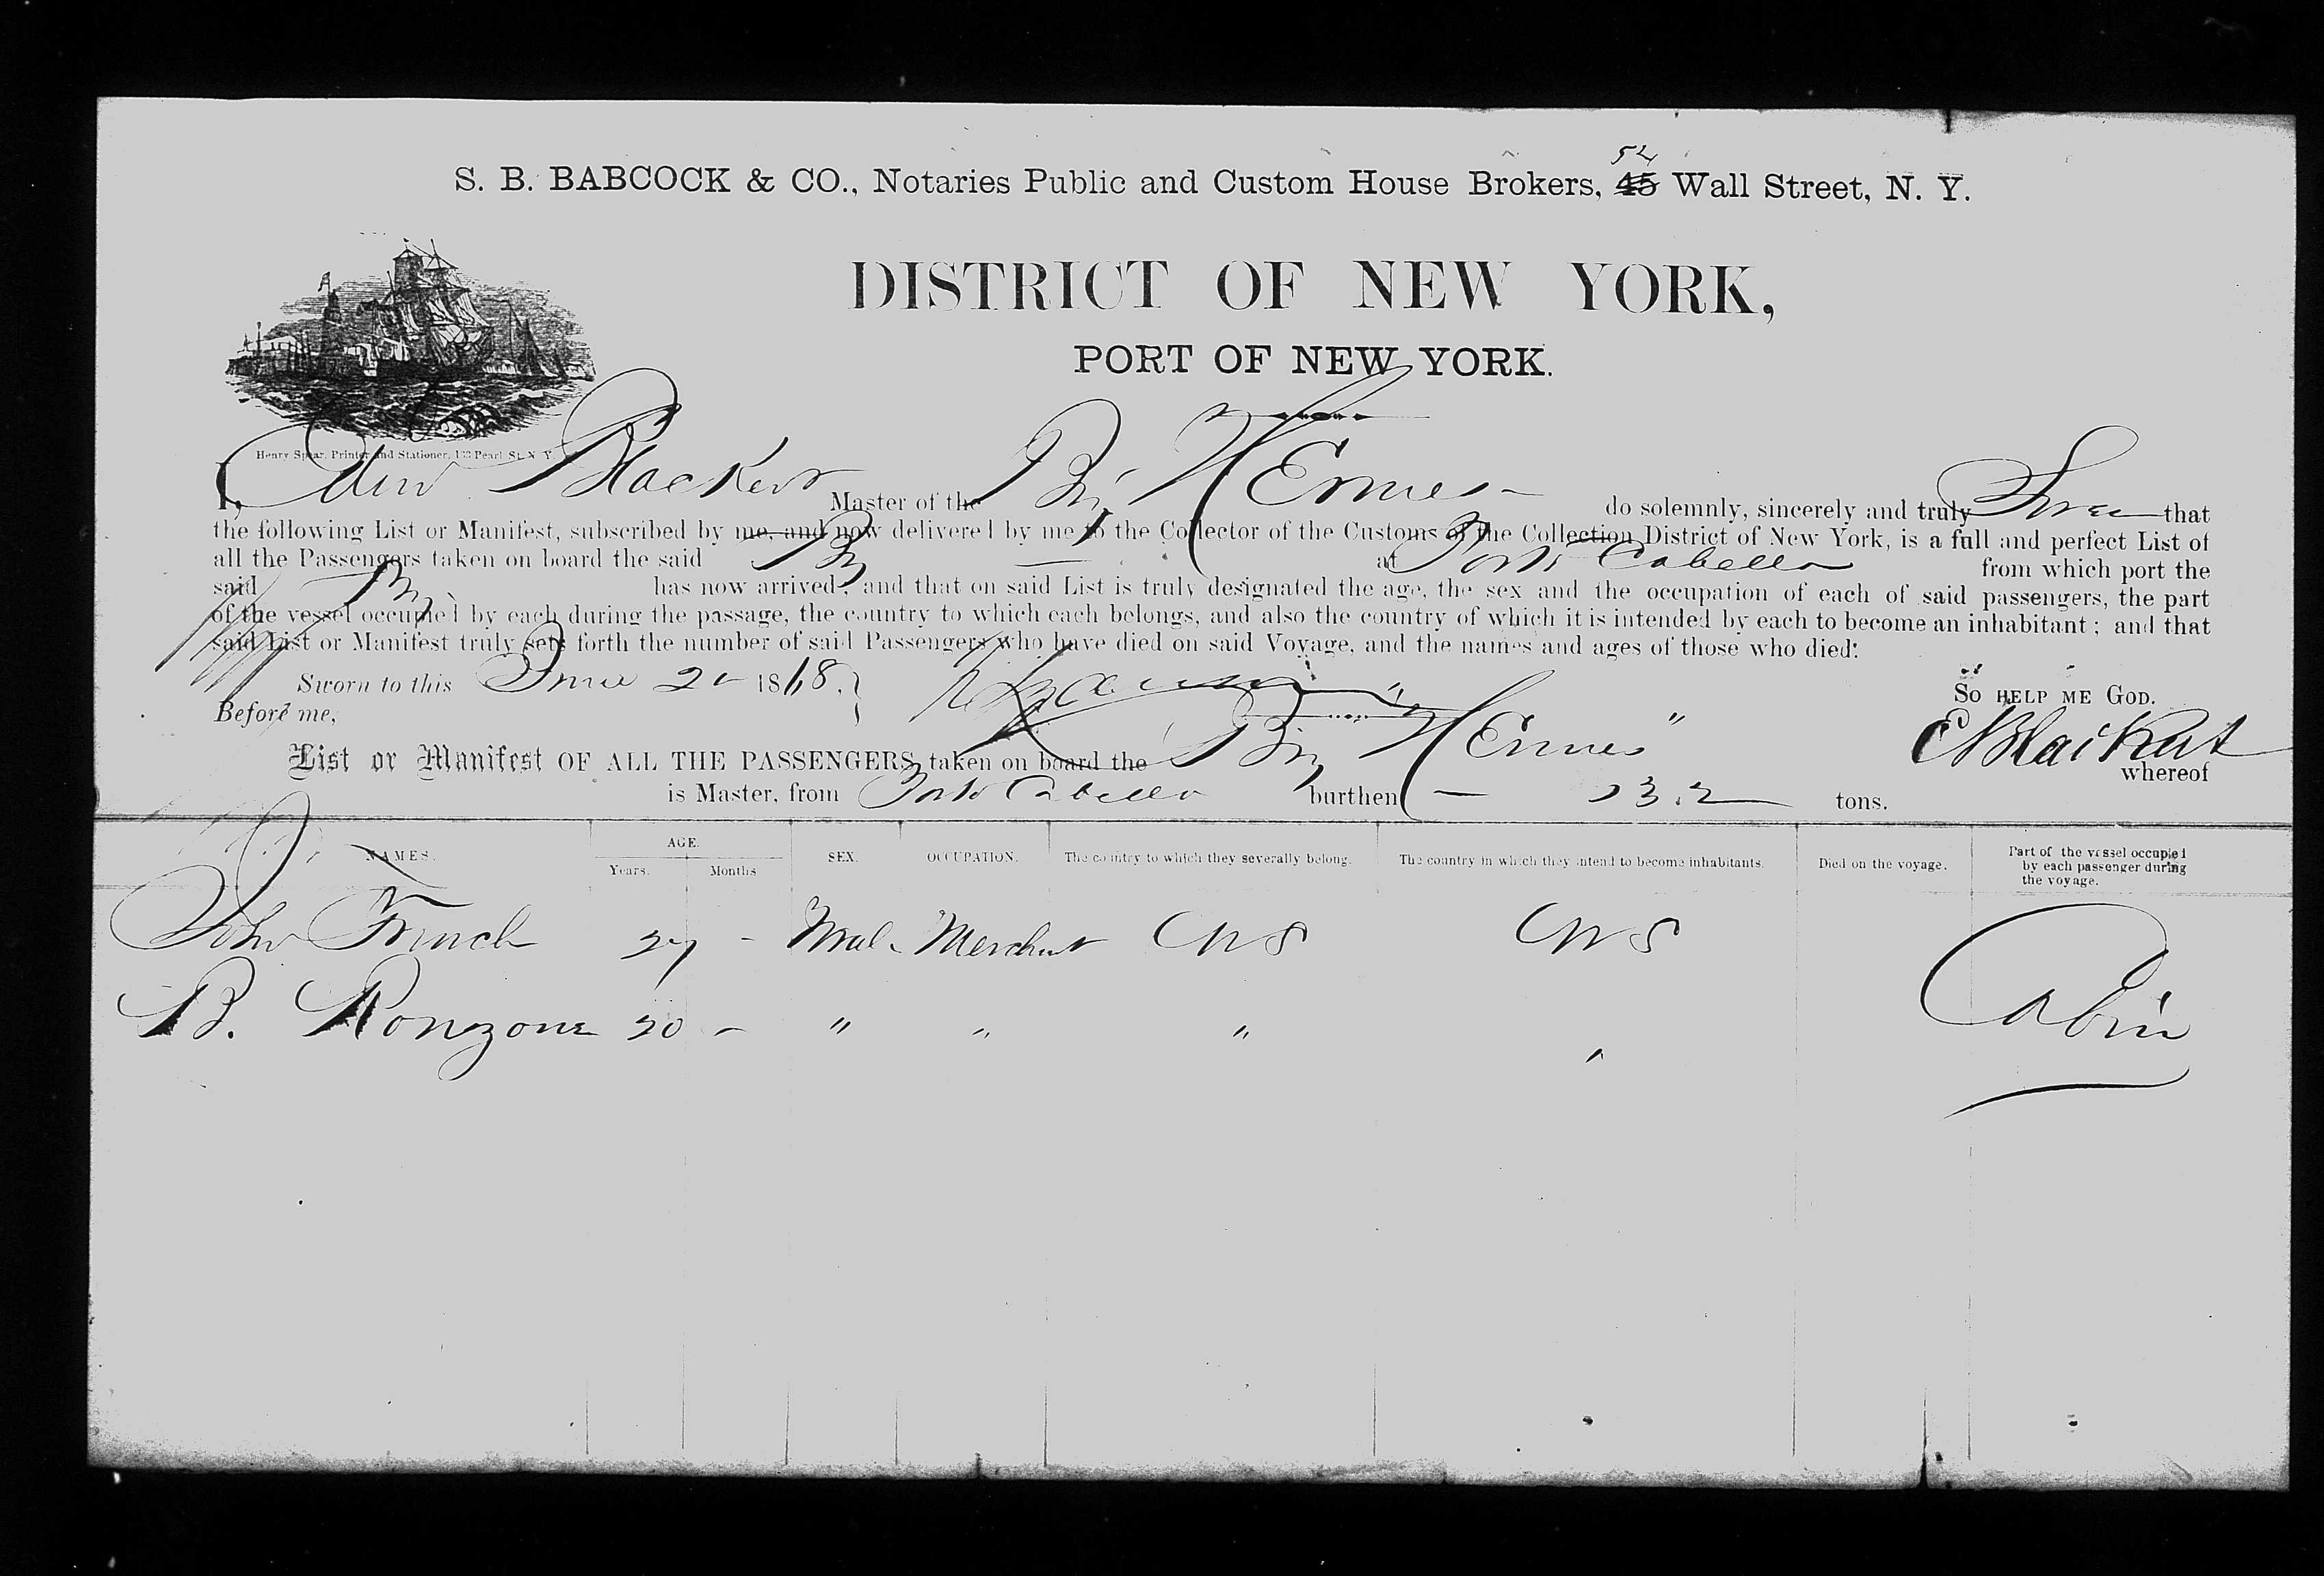 52
S. B. BABCOCK & CO., Notaries Public and Custom House Brokers, 45 Wall Street, N. Y.
DISTRICT OF NEW YORK,
PORT OF NEW YORK.
Henry Spear, Printer and Stationer, 133 Pearl St. N. Y.
I, Master of the do solemnly, sincerely and truly that
the following List or Manifest, subscribed by me, and now delivered by me to the Collector of the Customs of the Collection District of New York, is a full and perfect List of
all the Passengers taken on board the said Brig at Porto Cabello from which port the
said Brig has now arrived; and that on said List is truly designated the age, the sex and the occupation of each of said passengers, the part
of the vessel occupied by each during the passage, the country to which each belongs, and also the country of which it is intended by each to become an inhabitant; and that
said List or Manifest truly sets forth the number of said Passengers who have died on said Voyage, and the names and ages of those who died.
Sworn to this June 2 1868. So HELP ME GOD.
Before me,
List or Manifest OF ALL THE PASSENGERS taken on board the Brig whereof
is Master, from Porto Cabello burthen tons.
NAMES. AGE. Years. Months SEX. OCCUPATION. The country to which they severally belong. The country in which they intend to become inhabitants. Died on the voyage. Part of the vessel occupied by each passenger during the voyage.
John French 27 - Male Merchant U S U S
B. Ronzone 20 - " " " " Cabin